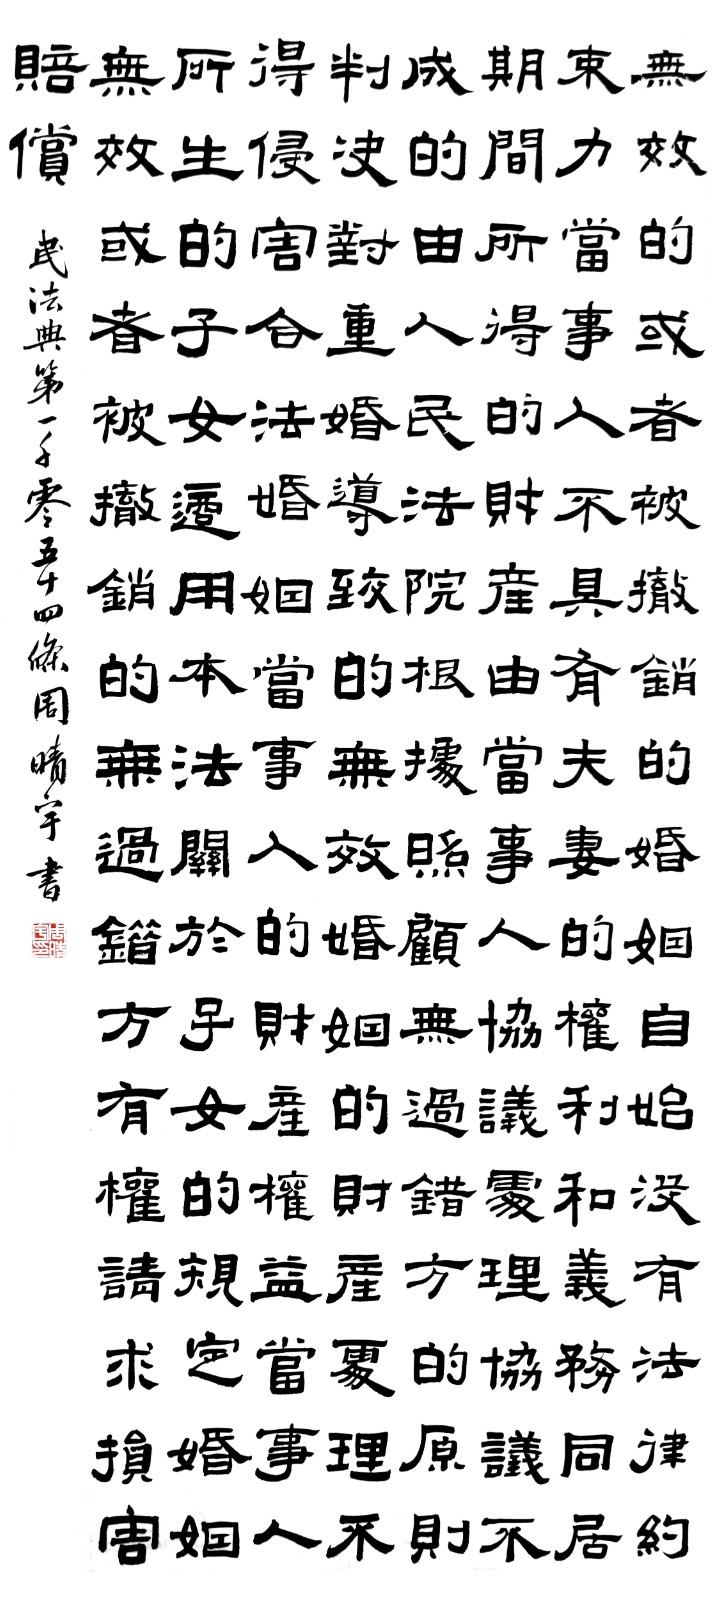 無效的或者被撤銷的婚姻自始没有法律約
束力當事人不具有夫妻的權利和義務同居
期間所得的財産由當事人協議處理協議不
成的由人民法院根據照顧無過錯方的原則
判决對重婚導致的無效婚姻的財産處理不
得侵害合法婚姻當事人的財産權益當事人
所生的子女適用本法關於子女的規定婚姻
無效或者被撤銷的無過錯方有權請求損害
賠償
民法典第一千零五十四條周晴宇書